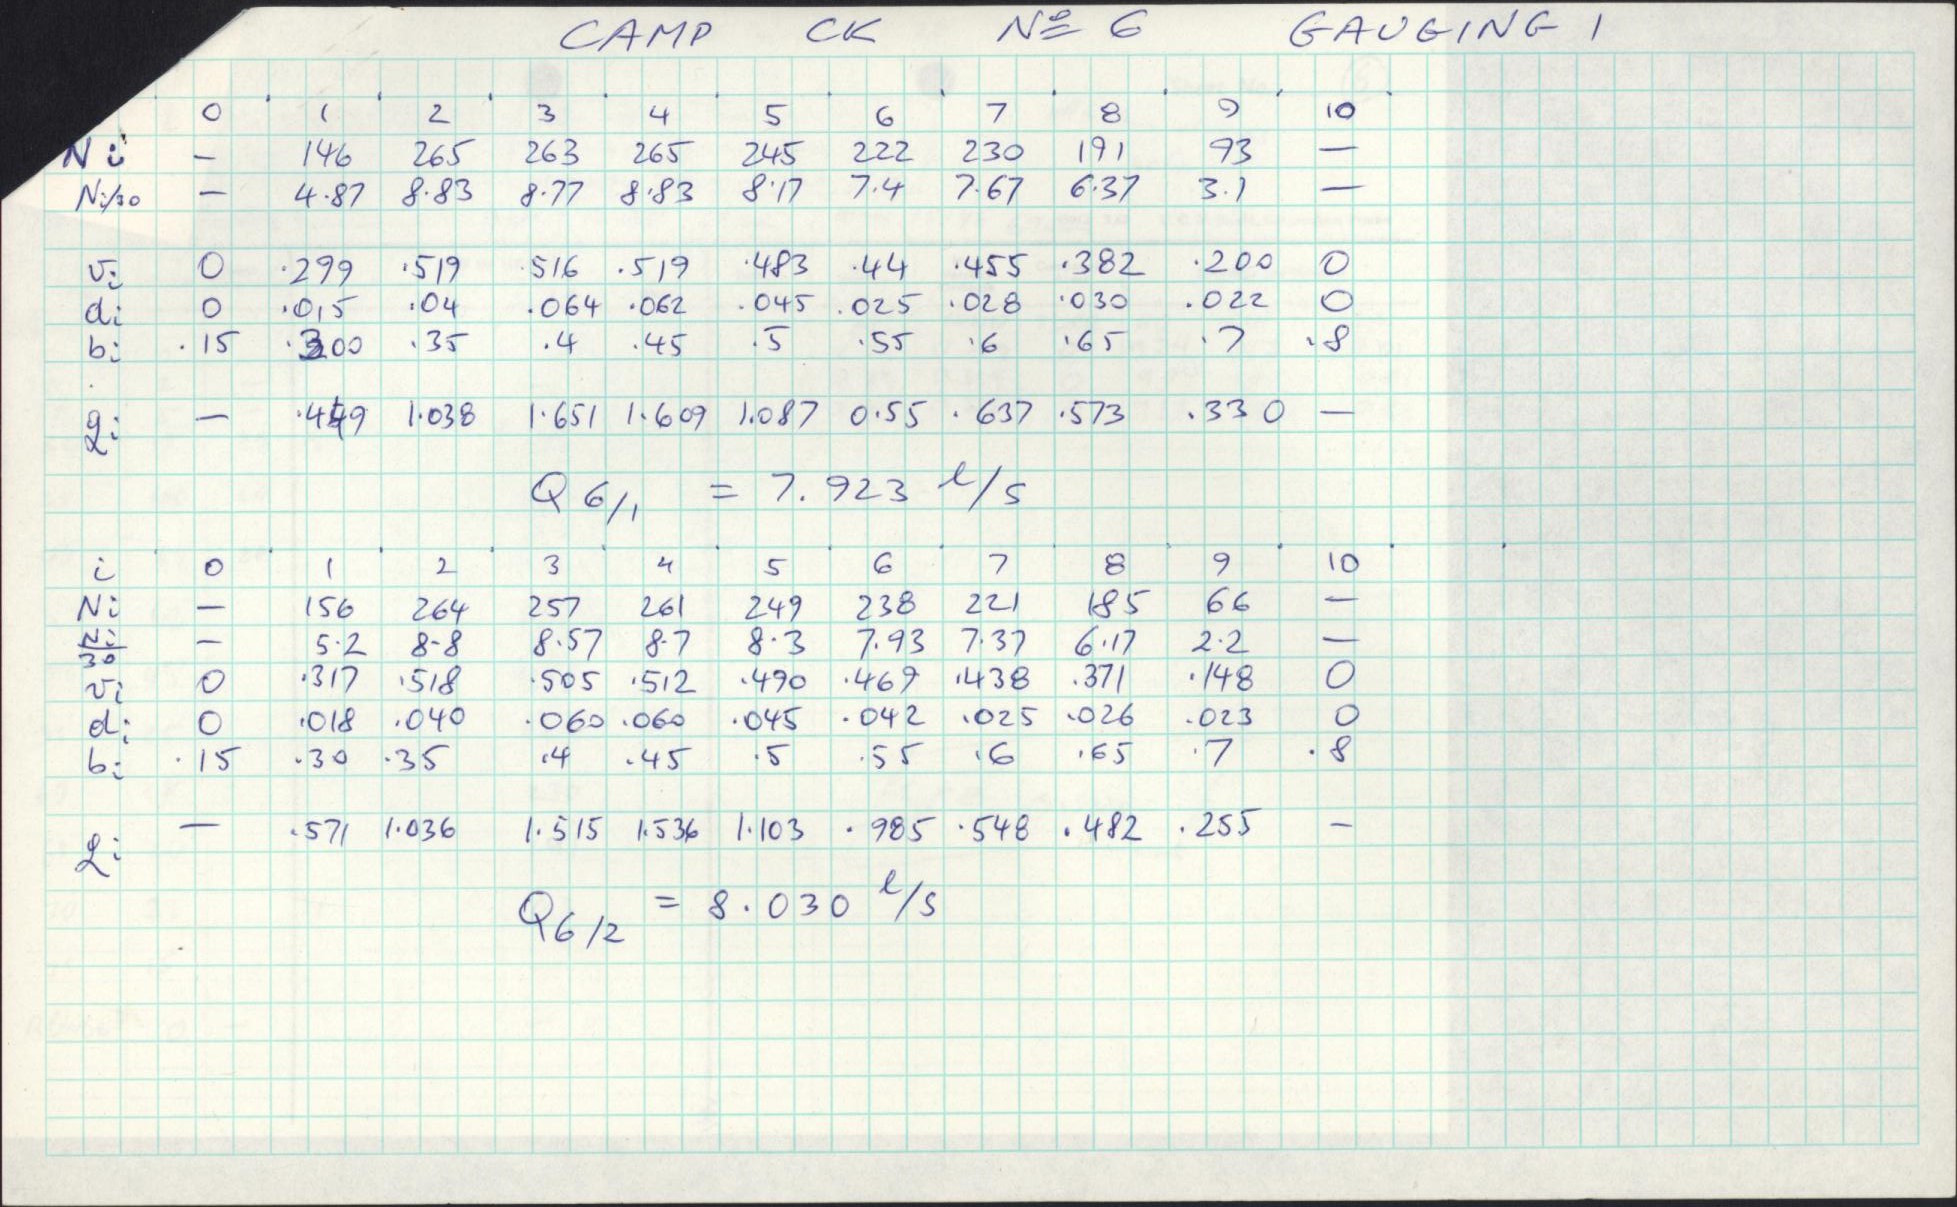 CAMP CK Nº 6 GAUGING 1
0 1 2 3 4 5 6 7 8 9 10
Ni — 146 265 263 265 245 222 230 191 93 —
Ni/30 — 4.87 8.83 8.77 8.83 8.17 7.4 7.67 6.37 3.1 —
vi 0 .299 .519 .516 .519 .483 .44 .455 .382 .200 0
di 0 .015 .04 .064 .062 .045 .025 .028 .030 .022 0
bi .15 .300 .35 .4 .45 .5 .55 .6 .65 .7 .8
qi — .449 1.038 1.651 1.609 1.087 0.55 .637 .573 .330 —
Q6/1 = 7.923 l/s
i 0 1 2 3 4 5 6 7 8 9 10
Ni — 156 264 257 261 249 238 221 185 66 —
Ni/30 — 5.2 8.8 8.57 8.7 8.3 7.93 7.37 6.17 2.2 —
vi 0 .317 .518 .505 .512 .490 .469 .438 .371 .148 0
di 0 .018 .040 .060 .060 .045 .042 .025 .026 .023 0
bi .15 .30 .35 .4 .45 .5 .55 .6 .65 .7 .8
qi — .571 1.036 1.515 1.536 1.103 .985 .548 .482 .255 —
Q6/2 = 8.030 l/s